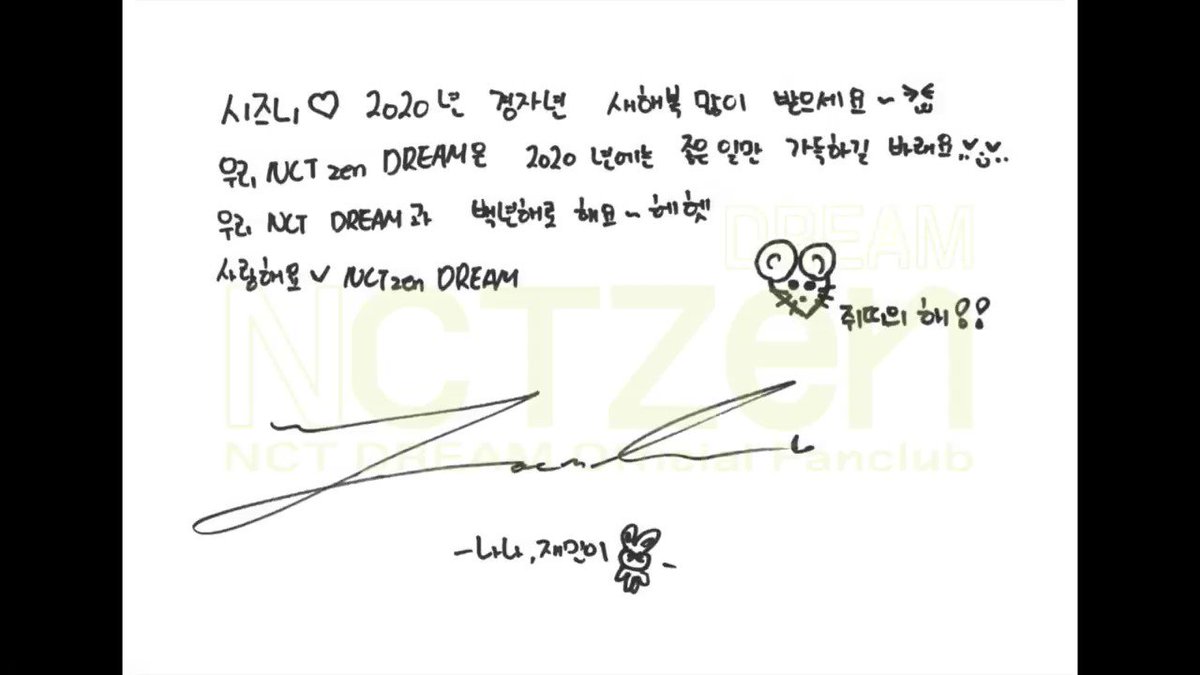 시즈니♡ 2020년 경자년 새해복 많이 받으세요~
우리 NCT zen DREAM은 2020년에는 좋은 일만 가득하길 바래요
우리 NCT DREAM과 백년해로 해요~ 헤헷
사랑해요 ✓ NCTzen DREAM
쥐띠의 해!!
DREAM
NCTzen
NCT DREAM Official Fanclub
Jaemin
-나나, 재민이 -